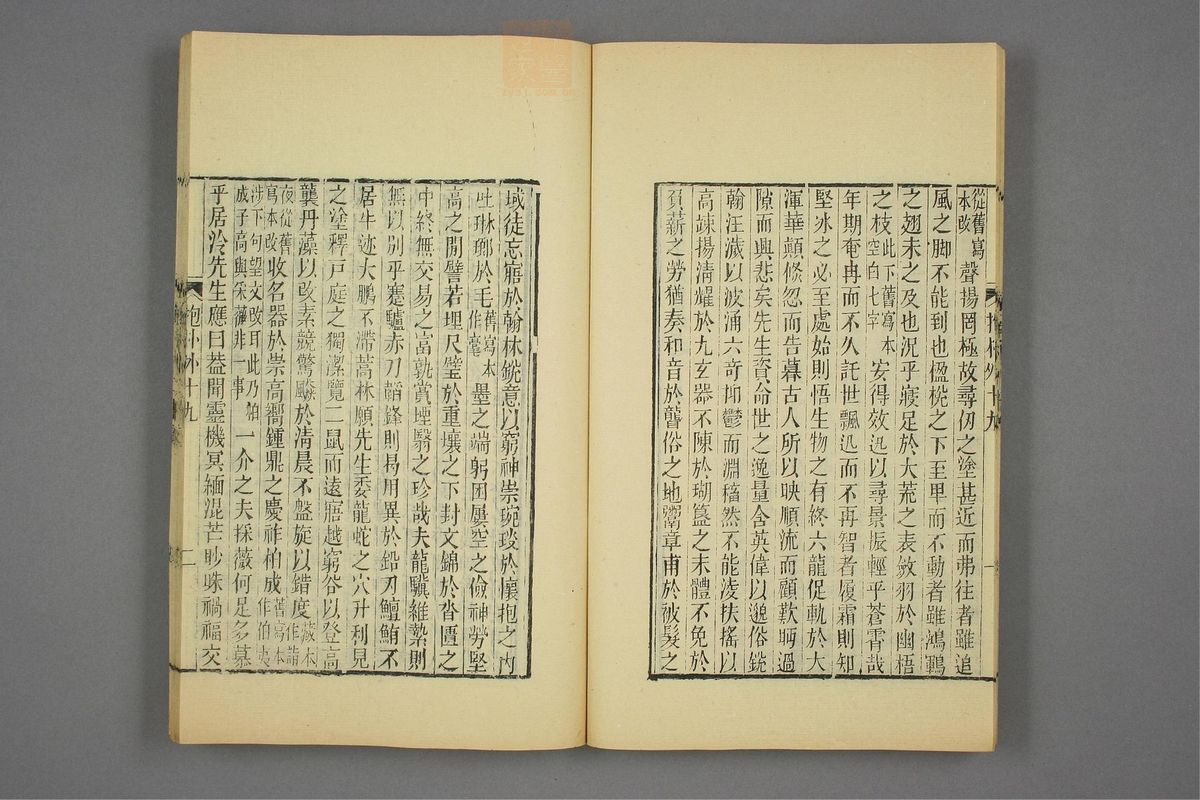 從舊寫本改聲揚罔極故尋仞之塗甚近而弗往者雖追
風之脚不能到也楹梲之下至卑而不動者雖鴻鶤
之翅未之及也況乎寢足於大荒之表斂羽於幽梧
之枝此下舊寫本空白七字安得效迅以尋景振輕乎蒼霄哉
年期奄冉而不久託世飄迅而不再智者履霜則知
堅冰之必至處始則悟生物之有終六龍促軌於大
渾華顛倏忽而告暮古人所以映順流而顧歎眄過
隙而興悲矣先生資命世之逸量含英偉以邈俗銳
翰汪濊以波涌六奇抑鬱而淵稸然不能淩扶搖以
高竦揚清耀於九玄器不陳於瑚簋之末體不免於
負薪之勞猶奏和音於聾俗之地鬻章甫於被髮之
域徒忘寤於翰林銳意以窮神崇琬琰於懷抱之內
吐琳瑯於毛舊寫本作毫墨之端躬困屢空之儉神勞堅
高之閒譬若埋尺璧於重壤之下封文錦於沓匱之
中終無交易之富孰賞堙翳之珍哉夫龍驥維縶則
無以別乎蹇驢赤刀韜鋒則曷用異於鉛刃鱣鮪不
居牛迹大鵬不滯蒿林願先生委龍蛇之穴升利見
之塗釋戶庭之獨潔覽二鼠而遠寤越窮谷以登高
襲丹藻以改素競驚飇於清晨不盤旋以錯度藏本作詣
夜從舊寫本改收名器於崇高嚮鍾鼎之慶祚柏成舊寫本作伯夷
涉下句望文改耳此乃柏成子高與采薇非一事一介之夫採薇何足多慕
乎居泠先生應曰葢聞靈機冥緬混芒眇昧禍福交
抱朴外十九
二